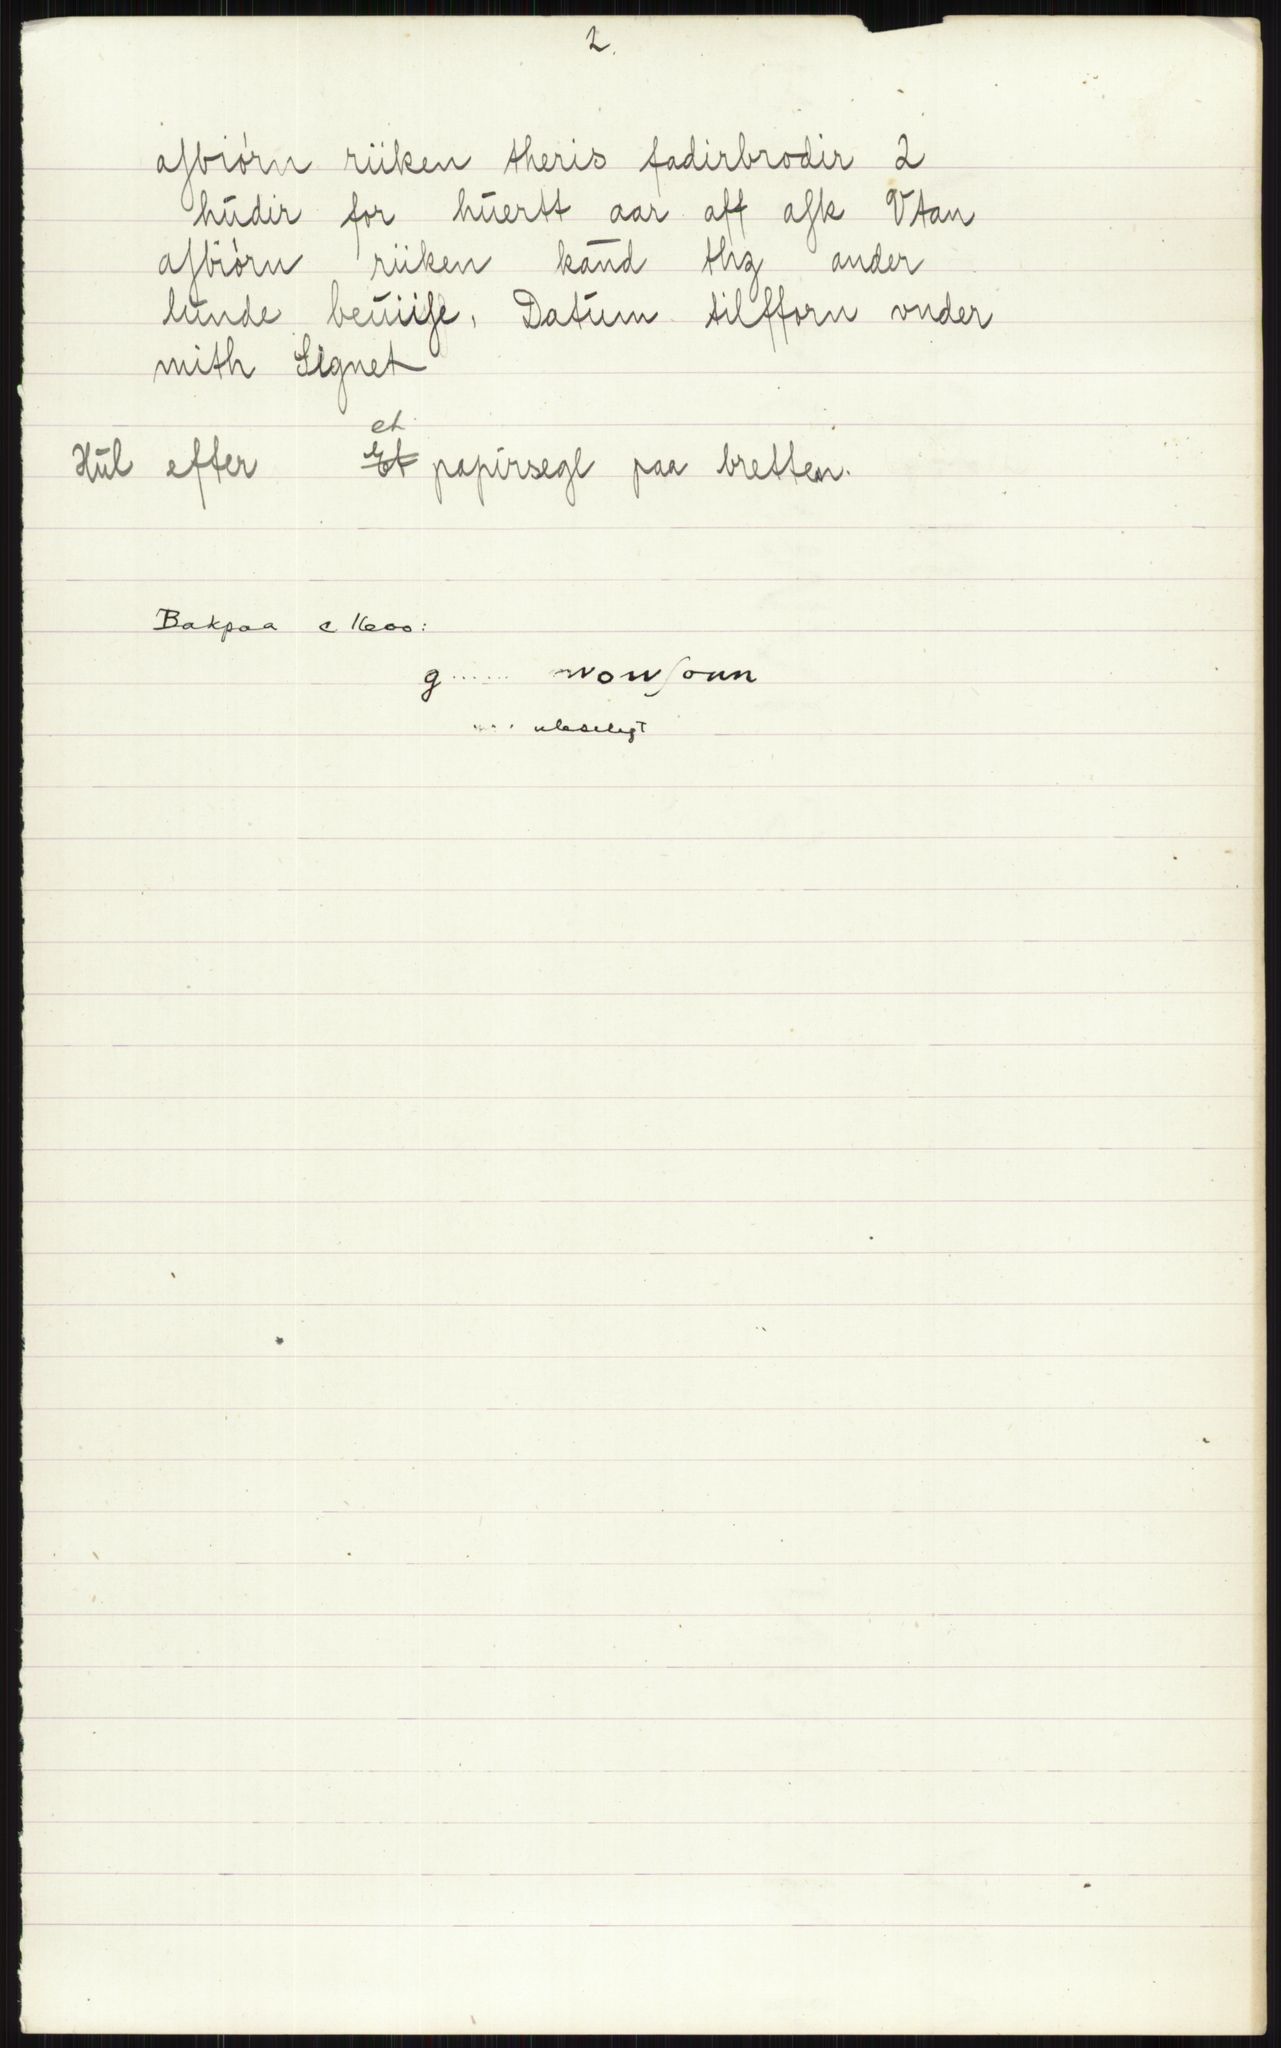 2.
asbiórn riiken theris fadirbrodir 2
hudir for huertt aar aff ask Vtan
asbiórn riiken kand thz ander
lunde beuiise, Datum tilfforn vnder
mith Signet
et
Hul efter Et papirsegl paa bretten.
Bakpaa c 1600:
g...... wowsonn
.... ulæseligt